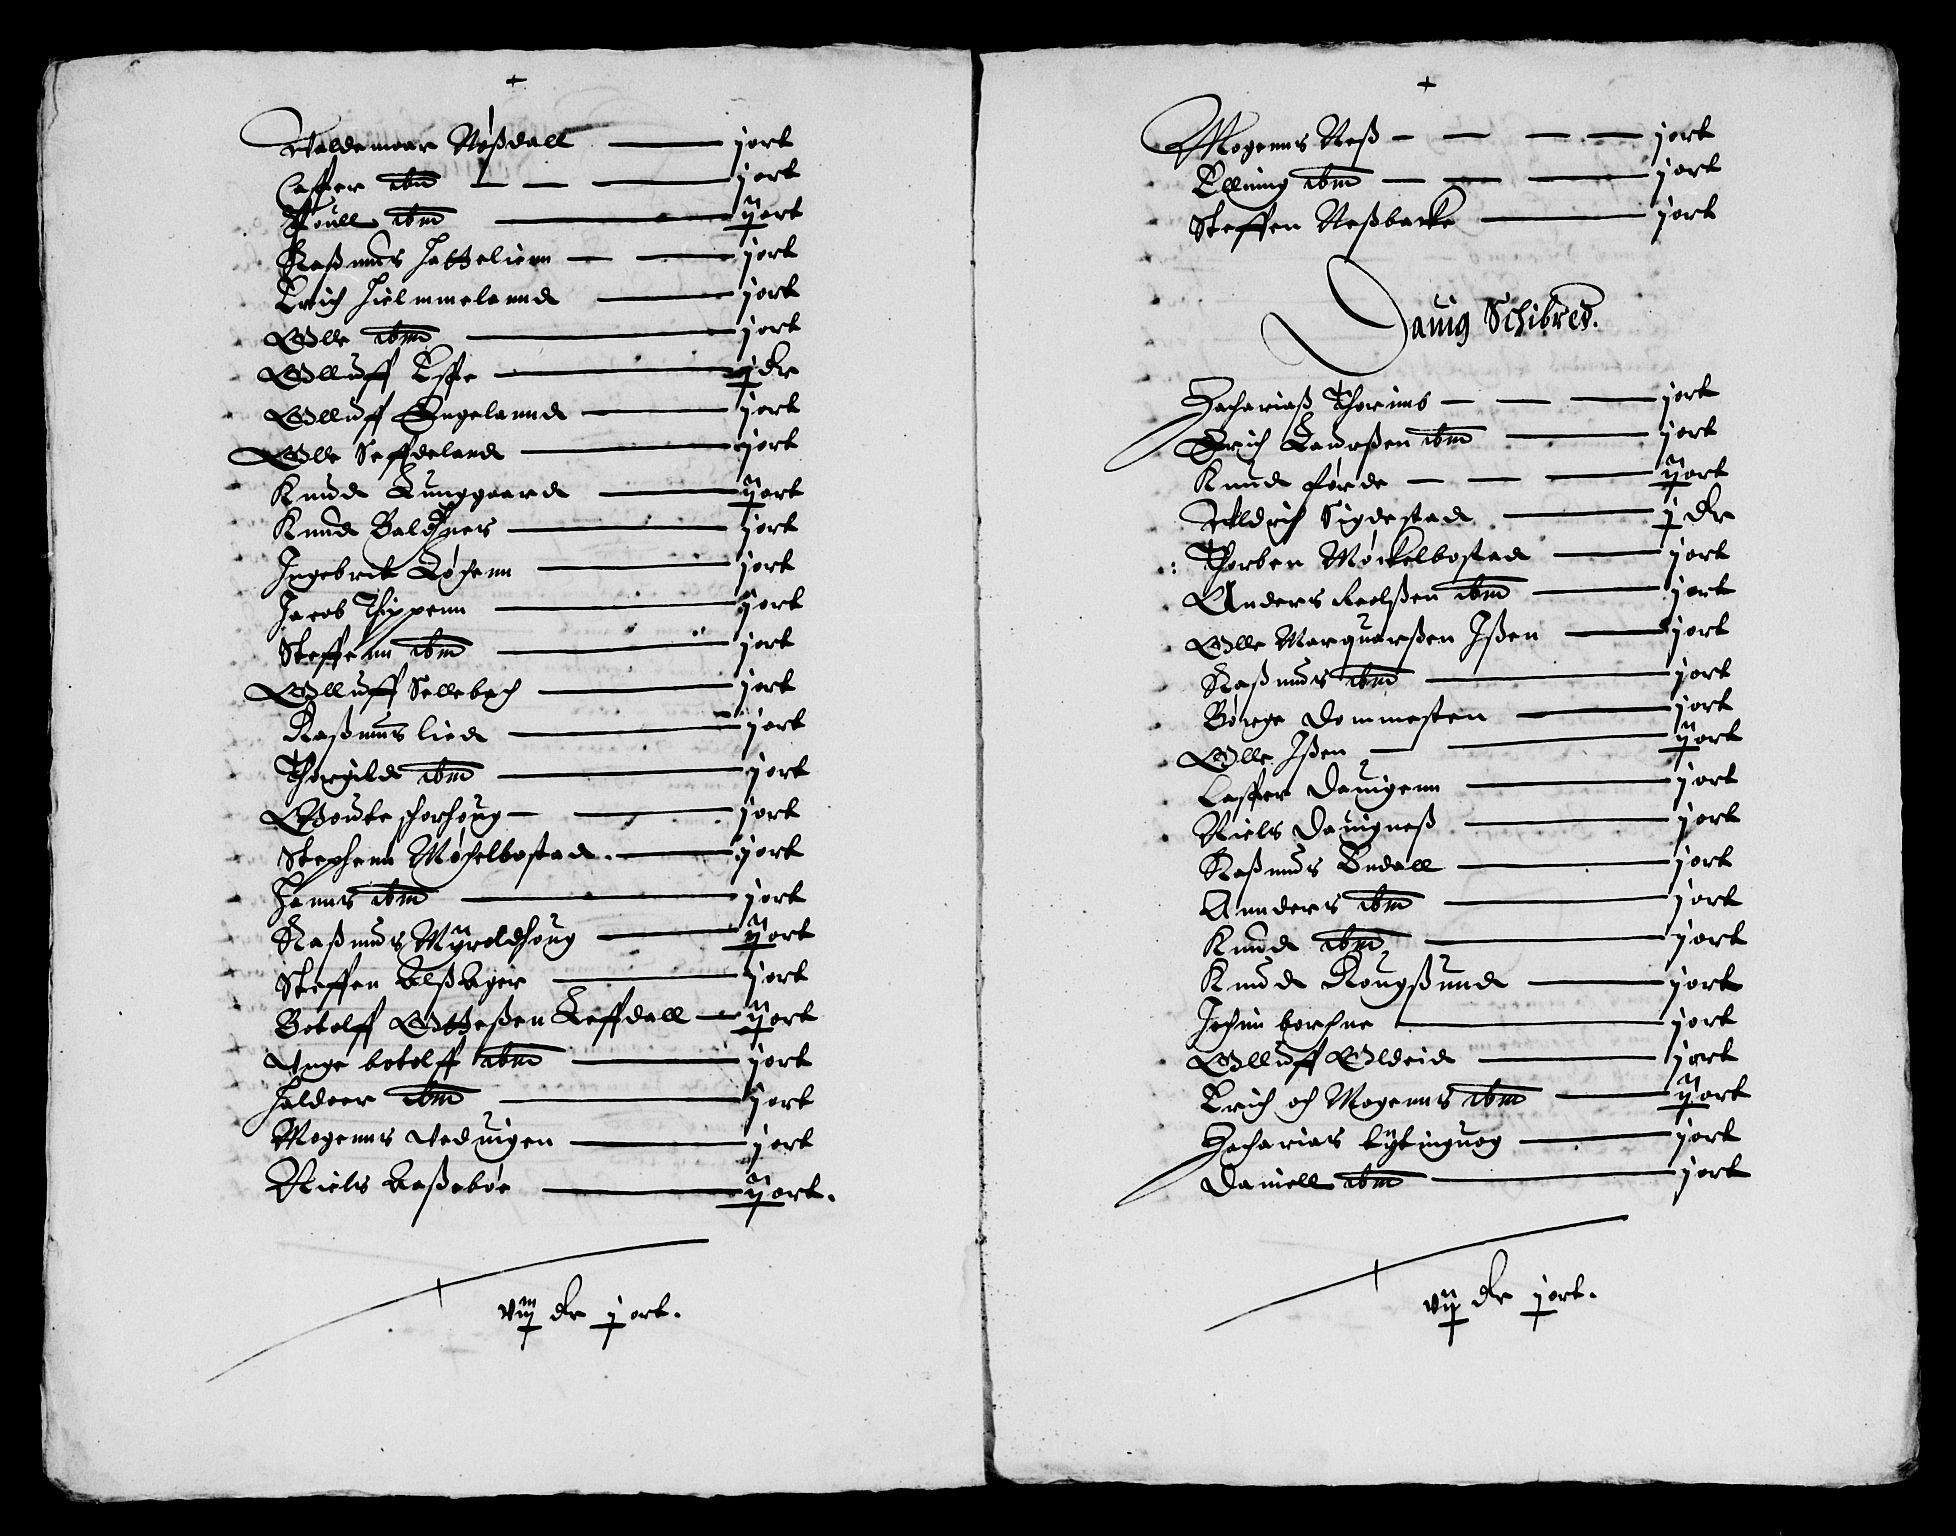 +
Valdemoar Nøßdall — j ort
Casper ibm — j ort
Poull ibm — ij ort
Raßmus Hatteliem — j ort
Erich Hielmmelannd — j ort
Olle ibm — j ort
Olluff Espe — j dr
Olluff Engelannd — j ort
Olle Seffdeland — j ort
Knud Lunggaard — ij ort
Knud Baldhner — j ort
Ingebret Løchenn — j ort
Jacob Thippenn — j ort
Steffenn ibm — j ort
Olluff Sellebach — j ort
Raßmus lied — j ort
Thorgild ibm — j ort
Goute schorhoug — j ort
Stephenn Møchelbostad — j ort
Hanns ibm — j ort
Raßmus Myroldhoug — ij ort
Steffen Alßager — j ort
Botolff Otteßen Leffdall — ij ort
Unge botolff ibm — j ort
Haldoer ibm — j ort
Mogenns Veduigen — j ort
Niels Aaßebøe — ij ort.
viij dr j ort.
+
Mogenns Neß — j ort
Elling ibm — j ort
Steffen Neßbacke — j ort
Dauigs Schibred.
Zachariaß Thorins — j ort
Erich Laurßen ibm — j ort
Knud førde — ij ort
Aldrich Sigdestad — j dr
Thorben Møckelbostad — j ort
Anders Keelßen ibm — j ort
Olle Marquarßen Ißen — j ort
Raßmus ibm — j ort
Børge Dommesten — j ort
Olle Ißen — ij ort
Casper Dauigenn — j ort
Niels Dauigneß — j ort
Raßmus Endall — j ort
Annders ibm — j ort
Knud ibm — j ort
Knud Rougßund — j ort
Jochim borchne — j ort
Olluff Oldeid — j ort
Erich och Mogenns ibm — ij ort
Zacharias lytinguog — j ort
Daniell ibm — j ort
vij dr j ort.